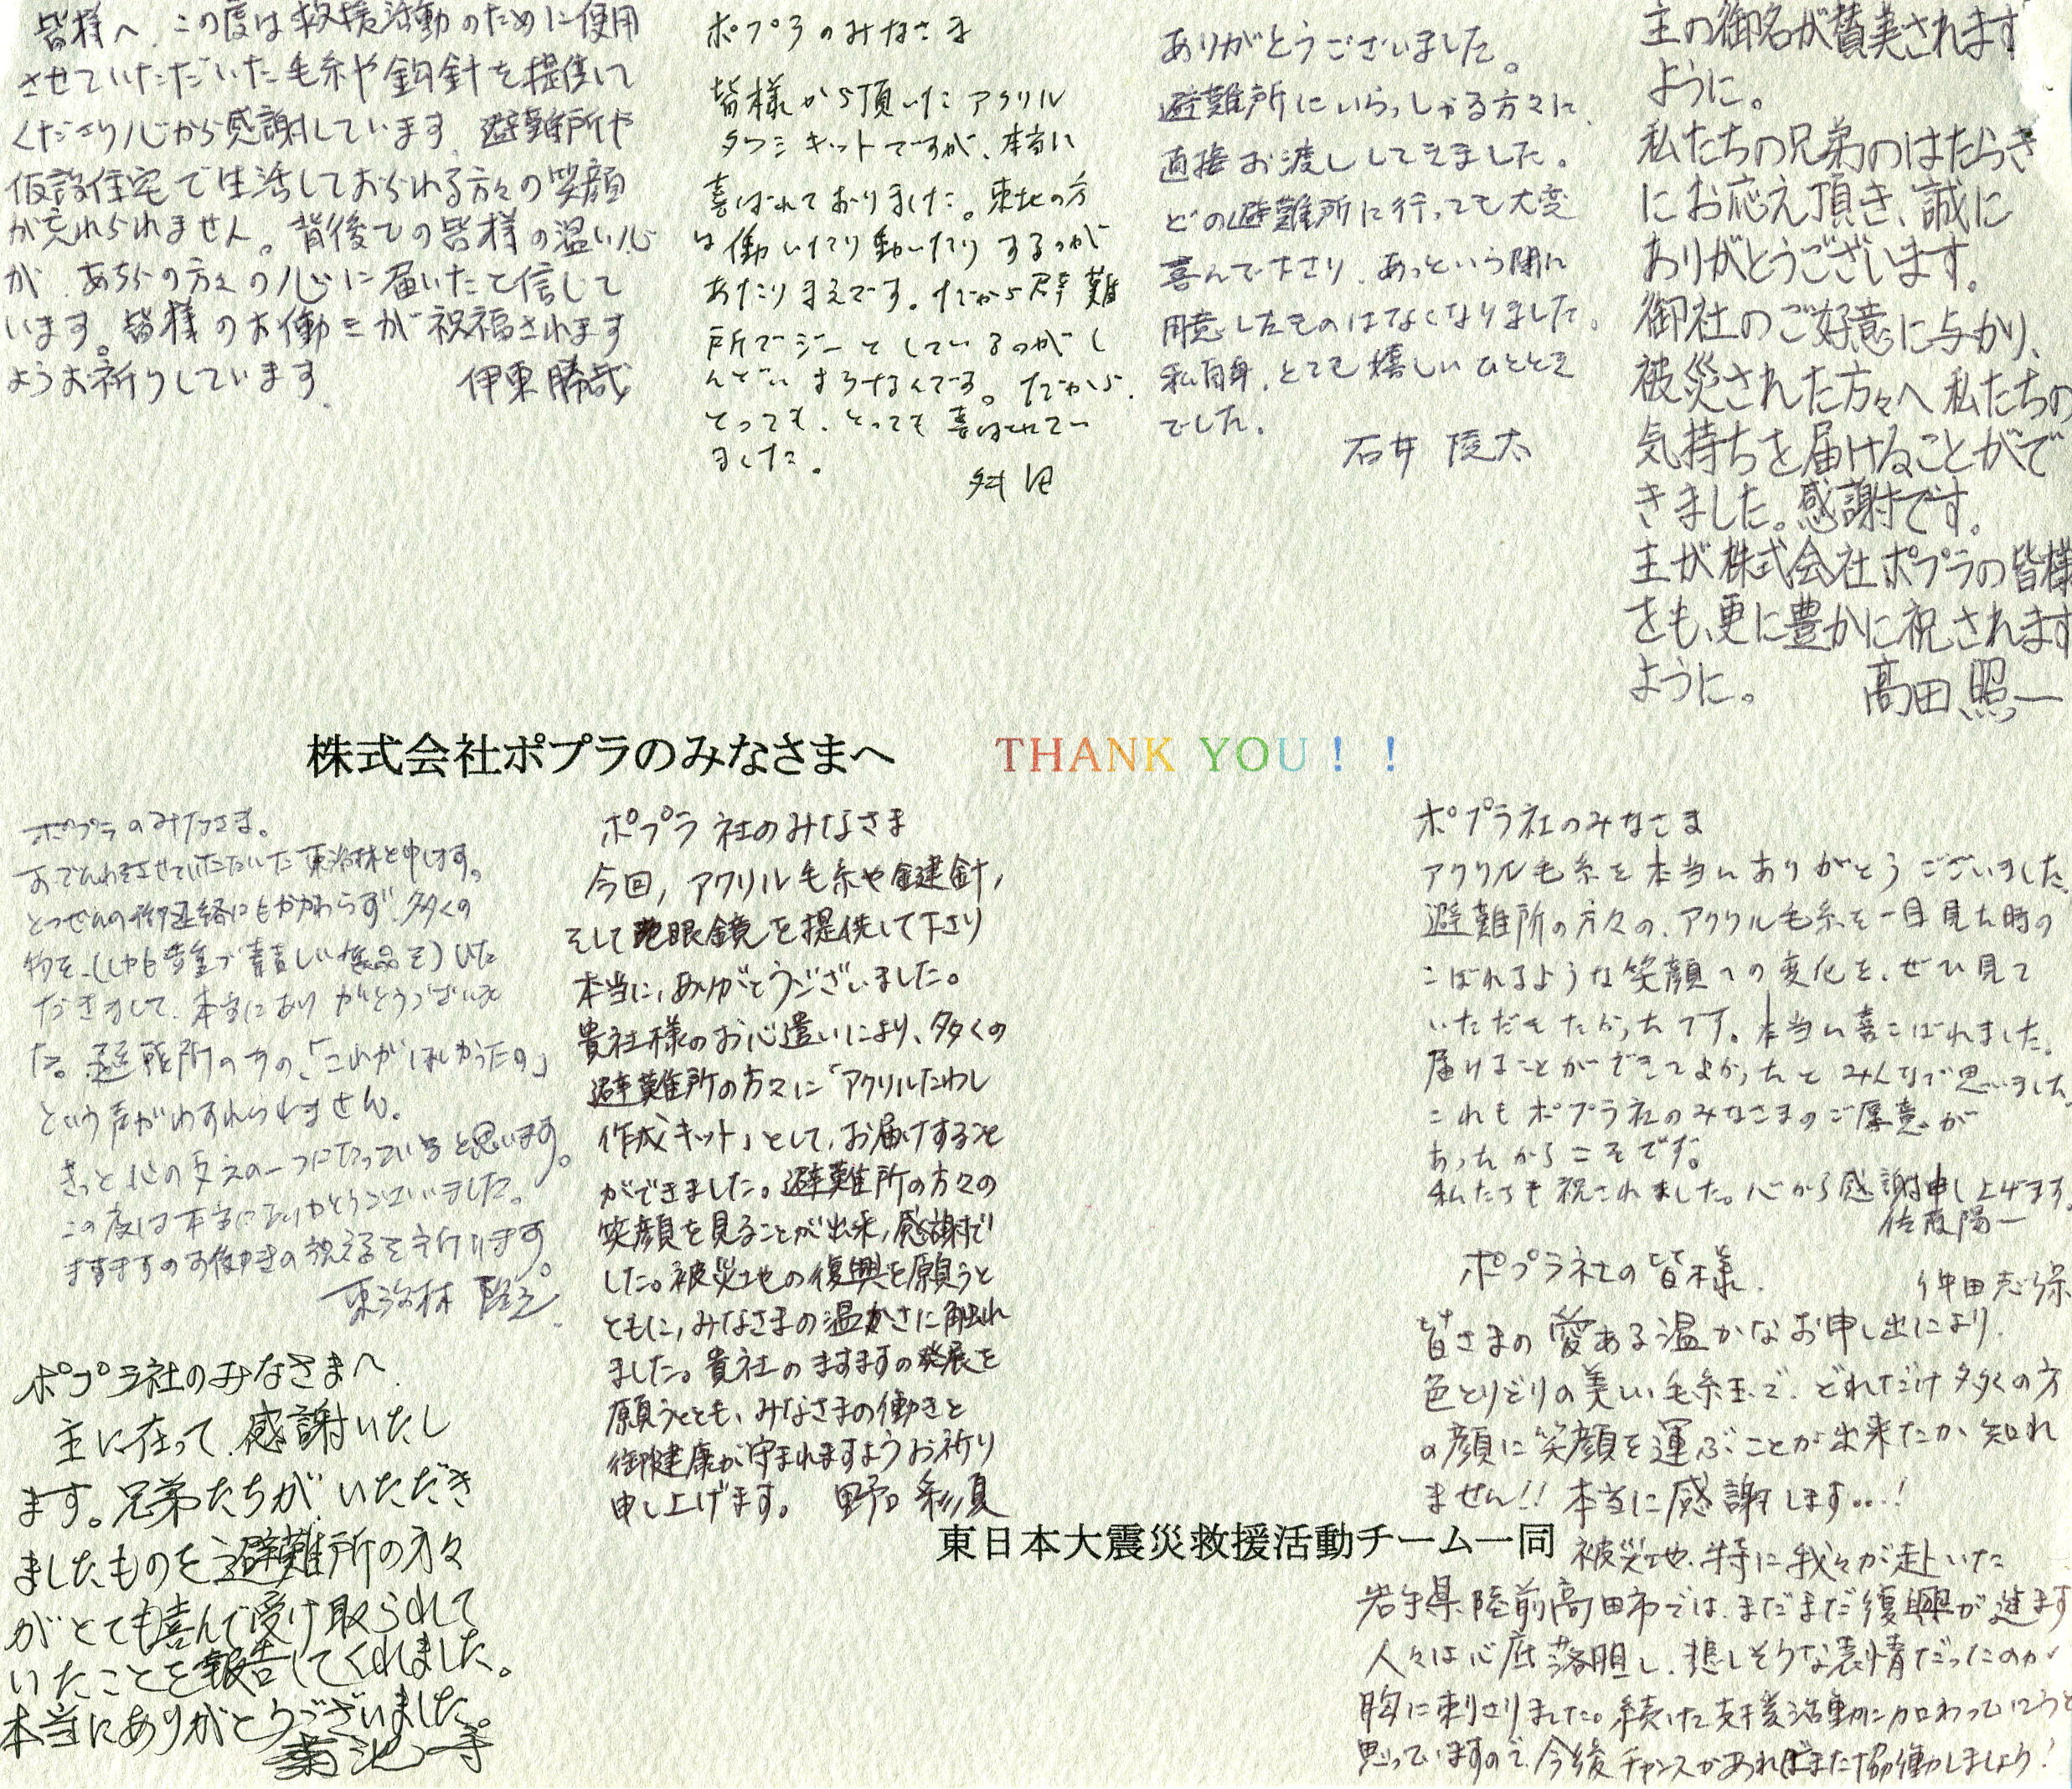 皆様へ、この度は救援活動のために使用
させていただいた毛糸や鈎針を提供して
くださり心から感謝しています。避難所や
仮設住宅で生活しておられる方々の笑顔
が忘れられません。背後での皆様の温い心
が、あちらの方々の心に届いたと信じて
います。皆様のお働きが祝福されます
ようお祈りしています。 伊東勝哉
ポプラのみなさま
皆様から頂いたアクリル
タワシキットですが、本当に
喜ばれておりました。東北の方
は働いたり動いたりするのが
あたりまえです。だから避難
所でジーとしているのがし
んどいようなんです。だから、
とっても、とっても喜ばれてい
ました。
ありがとうございました。
避難所にいらっしゃる方々に、
直接お渡ししてきました。
どの避難所に行っても大変
喜んで下さり、あっという間に
用意したものはなくなりました。
私自身、とても嬉しいひととき
でした。
石井 陵太
主の御名が賛美されます
ように。
私たちの兄弟のはたらき
にお応え頂き、誠に
ありがとうございます。
御社のご好意に与かり、
被災された方々へ私たちの
気持ちを届けることがで
きました。感謝です。
主が株式会社ポプラの皆様
をも、更に豊かに祝されます
ように。 高田照一
株式会社ポプラのみなさまへ THANK YOU！！
ポプラのみなさま。
おでんわをさせていただいた東海林と申します。
とつぜんの御連絡にもかかわらず、多くの
物を、(しかも貴重で素晴しい製品を)いた
だきまして、本当にありがとうございまし
た。避難所の方の、「これがほしかったの」
という声がわすれられません。
きっと心の支えの一つになっていると思います。
この度は本当にありがとうございました。
ますますのお働きの祝福を祈ります。
東海林
ポプラ社のみなさまへ
主に在って、感謝いたし
ます。兄弟たちが、いただき
ましたものを避難所の方々
がとても喜んで受け取られて
いたことを報告してくれました。
本当にありがとうございました。
菊池一孝
ポプラ社のみなさま
今回, アクリル毛糸や鍵針,
そして眼鏡を提供して下さり
本当に, ありがとうございました。
貴社様のお心遣いにより、多くの
避難所の方々に「アクリルたわし
作成キット」として, お届けすること
ができました。避難所の方々の
笑顔を見ることが出来, 感謝で
した。被災地の復興を願うと
ともに, みなさまの温かさに触れ
ました。貴社のますますの発展を
願うとともに、みなさまの働きと
御健康が守られますようお祈り
申し上げます。 野口 彩夏
ポプラ社のみなさま
アクリル毛糸を本当にありがとうございました。
避難所の方々の、アクリル毛糸を一目見た時の
こぼれるような笑顔への変化を、ぜひ見て
いただきたかったです。本当に喜こばれました。
届けることができてよかったとみんなで思いました。
これもポプラ社のみなさまのご厚意が
あったからこそです。
私たちも祝されました。心から感謝申し上げます。
佐阪陽一
ポプラ社の皆様 仲田志保
皆さまの愛ある温かなお申し出により、
色とりどりの美しい毛糸玉で、どれだけ多くの方
の顔に笑顔を運ぶことが出来たか知れ
ません!! 本当に感謝します...!
東日本大震災救援活動チーム一同
被災地、特に我々が赴いた
岩手県陸前高田市では、まだまだ復興が進まず
人々は心底落胆し、悲しそうな表情だったのが
胸に刺さりました。続けて支援活動に加わっていこうと
思っていますので、今後チャンスがあればまた協働しましょう!